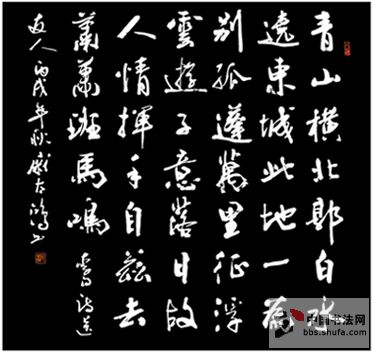 青山橫北郭白水
遶東城此地一為
别孤蓬萬里征浮
雲遊子意落日故
人情揮手自兹去
蕭蕭班馬鳴 诗送
友人 丙戌年秋 书
中国书法网
bbs.shufa.com